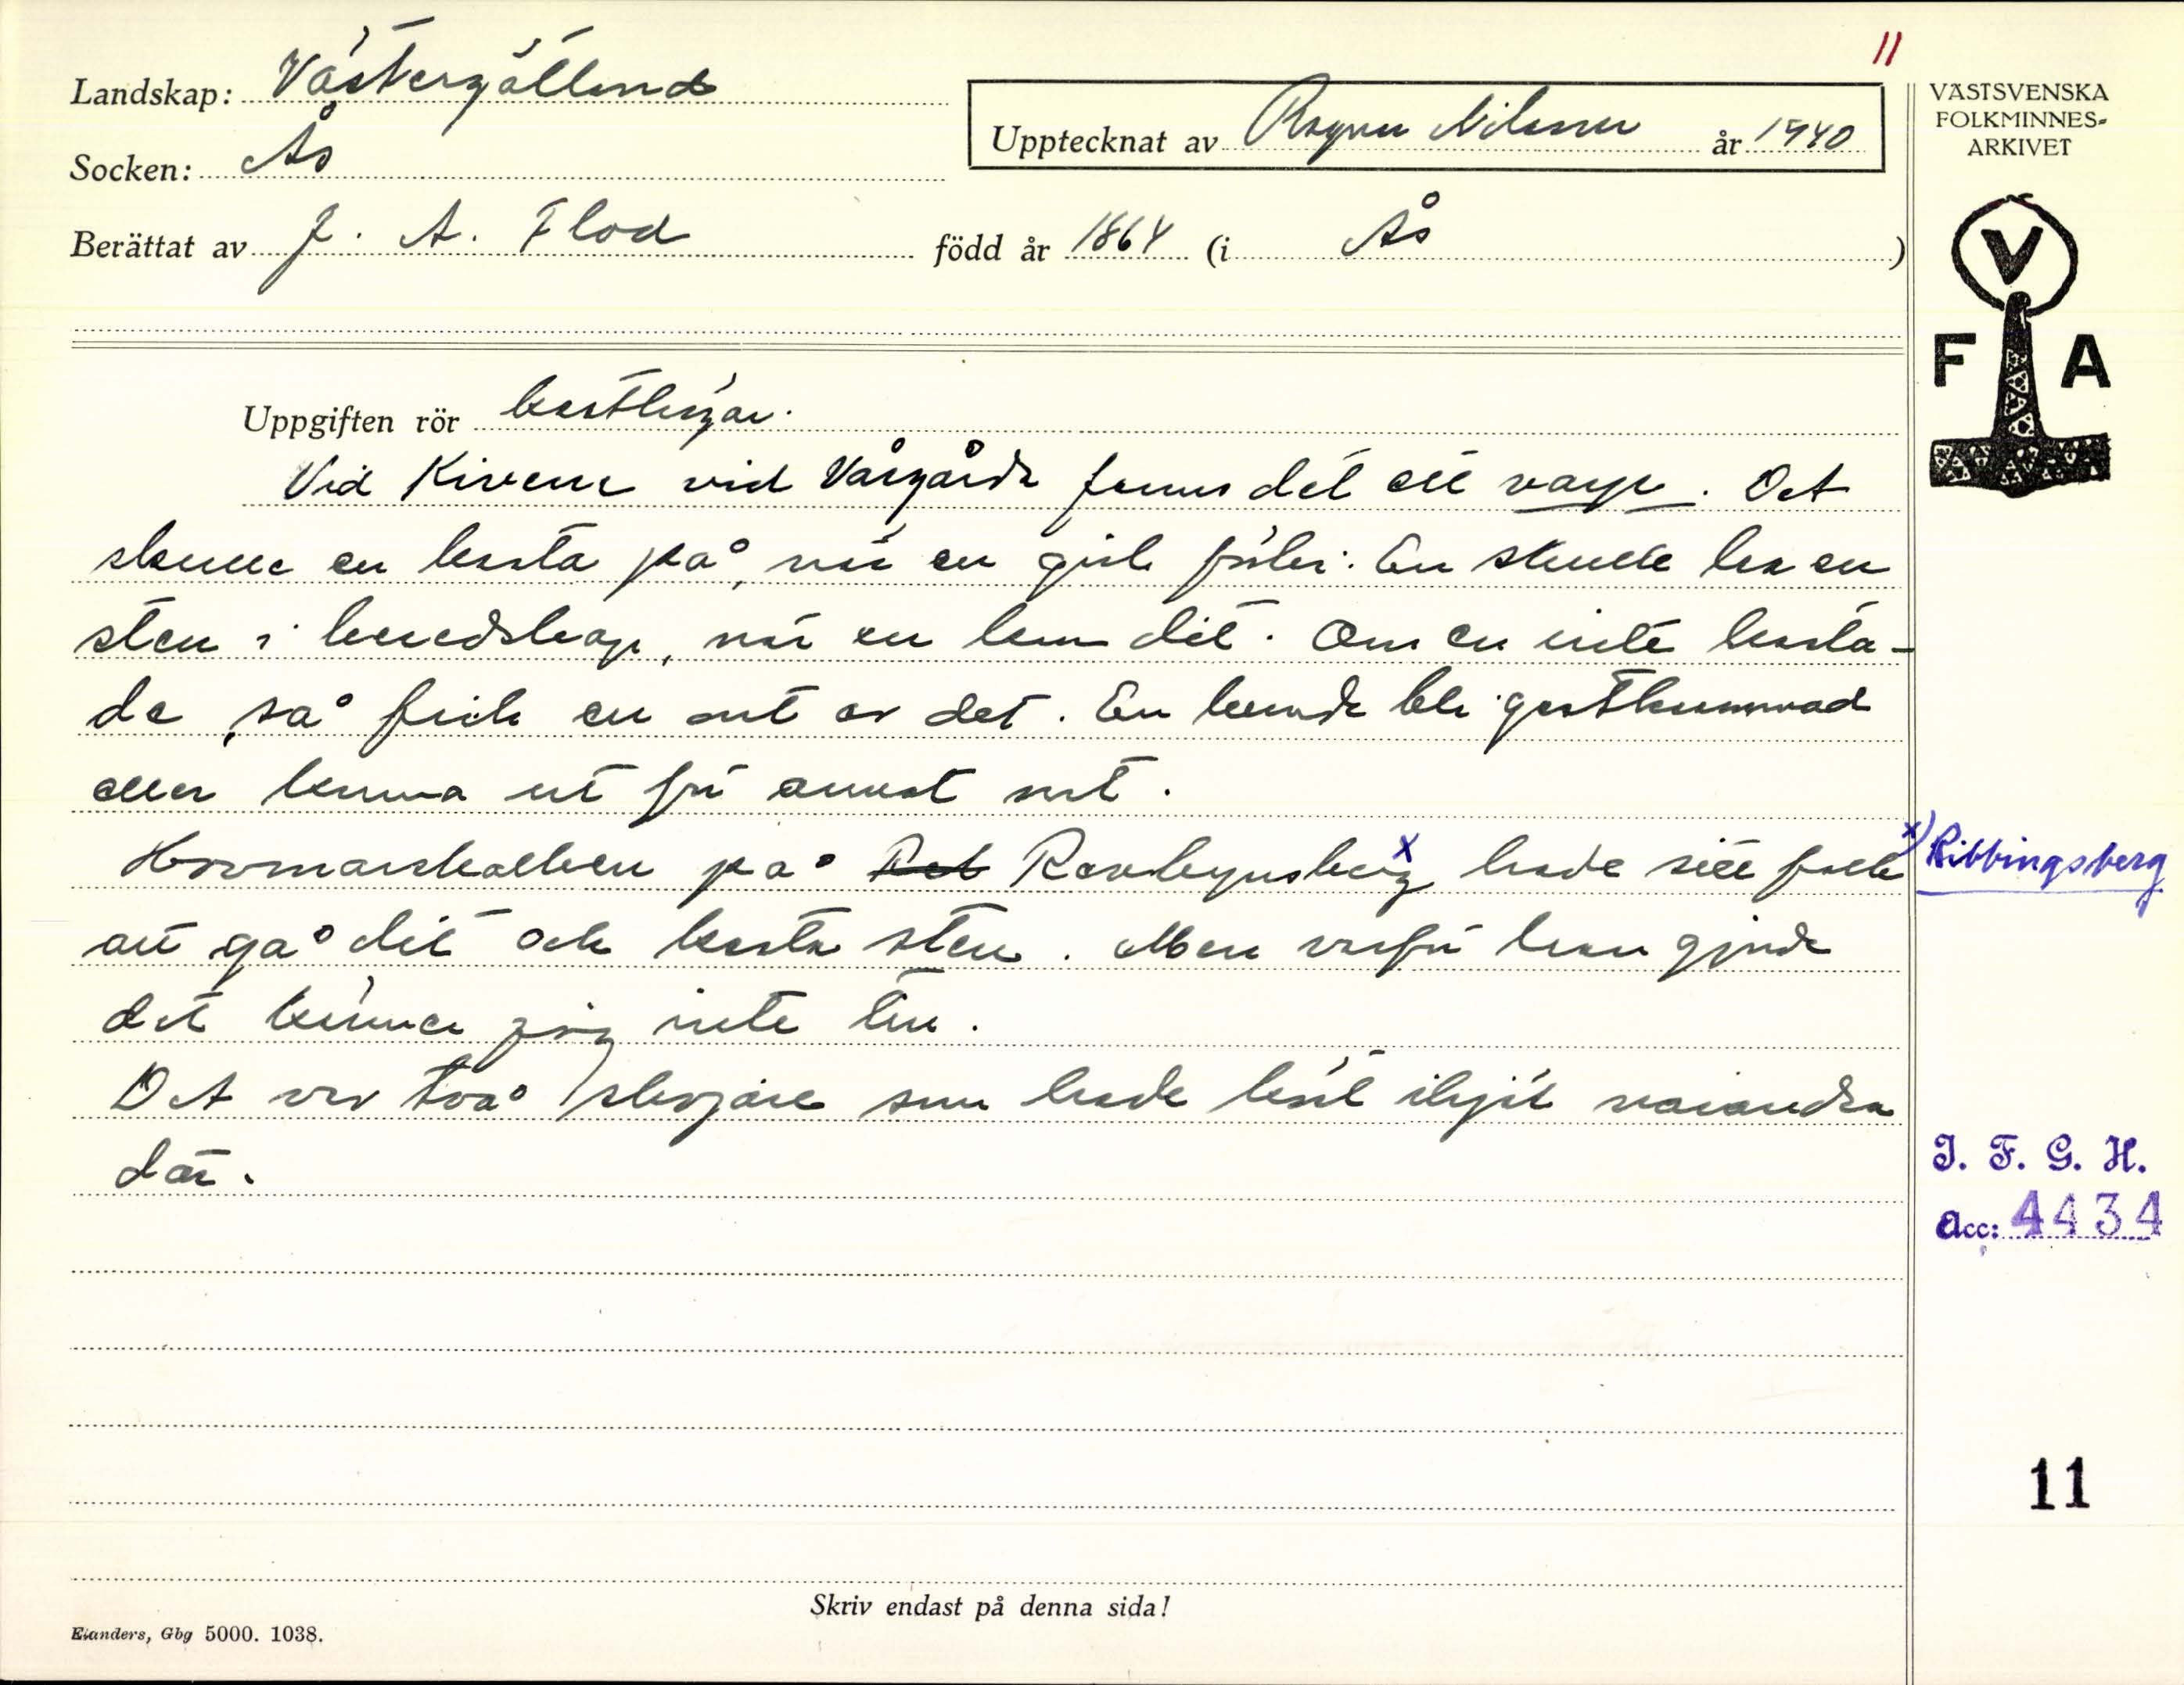 11
Landskap: Västergötland
Socken: Ås
Upptecknat av Ragnar Nilsson år 1940
Berättat av J. A. Flod född år 1864 (i Ås)
VÄSTSVENSKA
FOLKMINNES-
ARKIVET
V
F A
Uppgiften rör kasthögar.
Vid Kivene vid Vårgårda fanns det ett varp. Det
skulle en kasta på, när en gick förbi. En skulle ha en
sten i beredskap, när en kom dit. Om en inte kasta-
de, så fick en ont av det. En kunde bli gastkrammad
eller komma ut för annat ont.
Hovmarskalken på Reb Ravlingsberg x hade sitt folk
att gå dit och kasta sten. Men varför han gjorde
det känner jag inte till.
x) Ribbingsberg
Det var två skojare som hade löst ihjäl varandra
där.
I. F. G. H.
Acc: 4434
11
Skriv endast på denna sida!
Elanders, Gbg 5000. 1038.